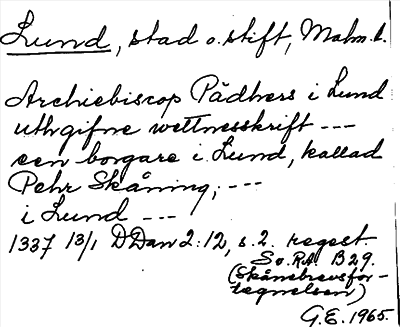 Lund, stad o. stift, Malm. l.
Archiebiscop Pädhers i Lund
uthgifne wettnesskrift ---
een borgare i Lund, kallad
Pehr Skåning, ---
i Lund ---
1337 13/1 DDan 2:12, s. 2. regest.
Sv. RA B 29.
(Skånebrevsför-
tegnelsen)
G.E. 1965.